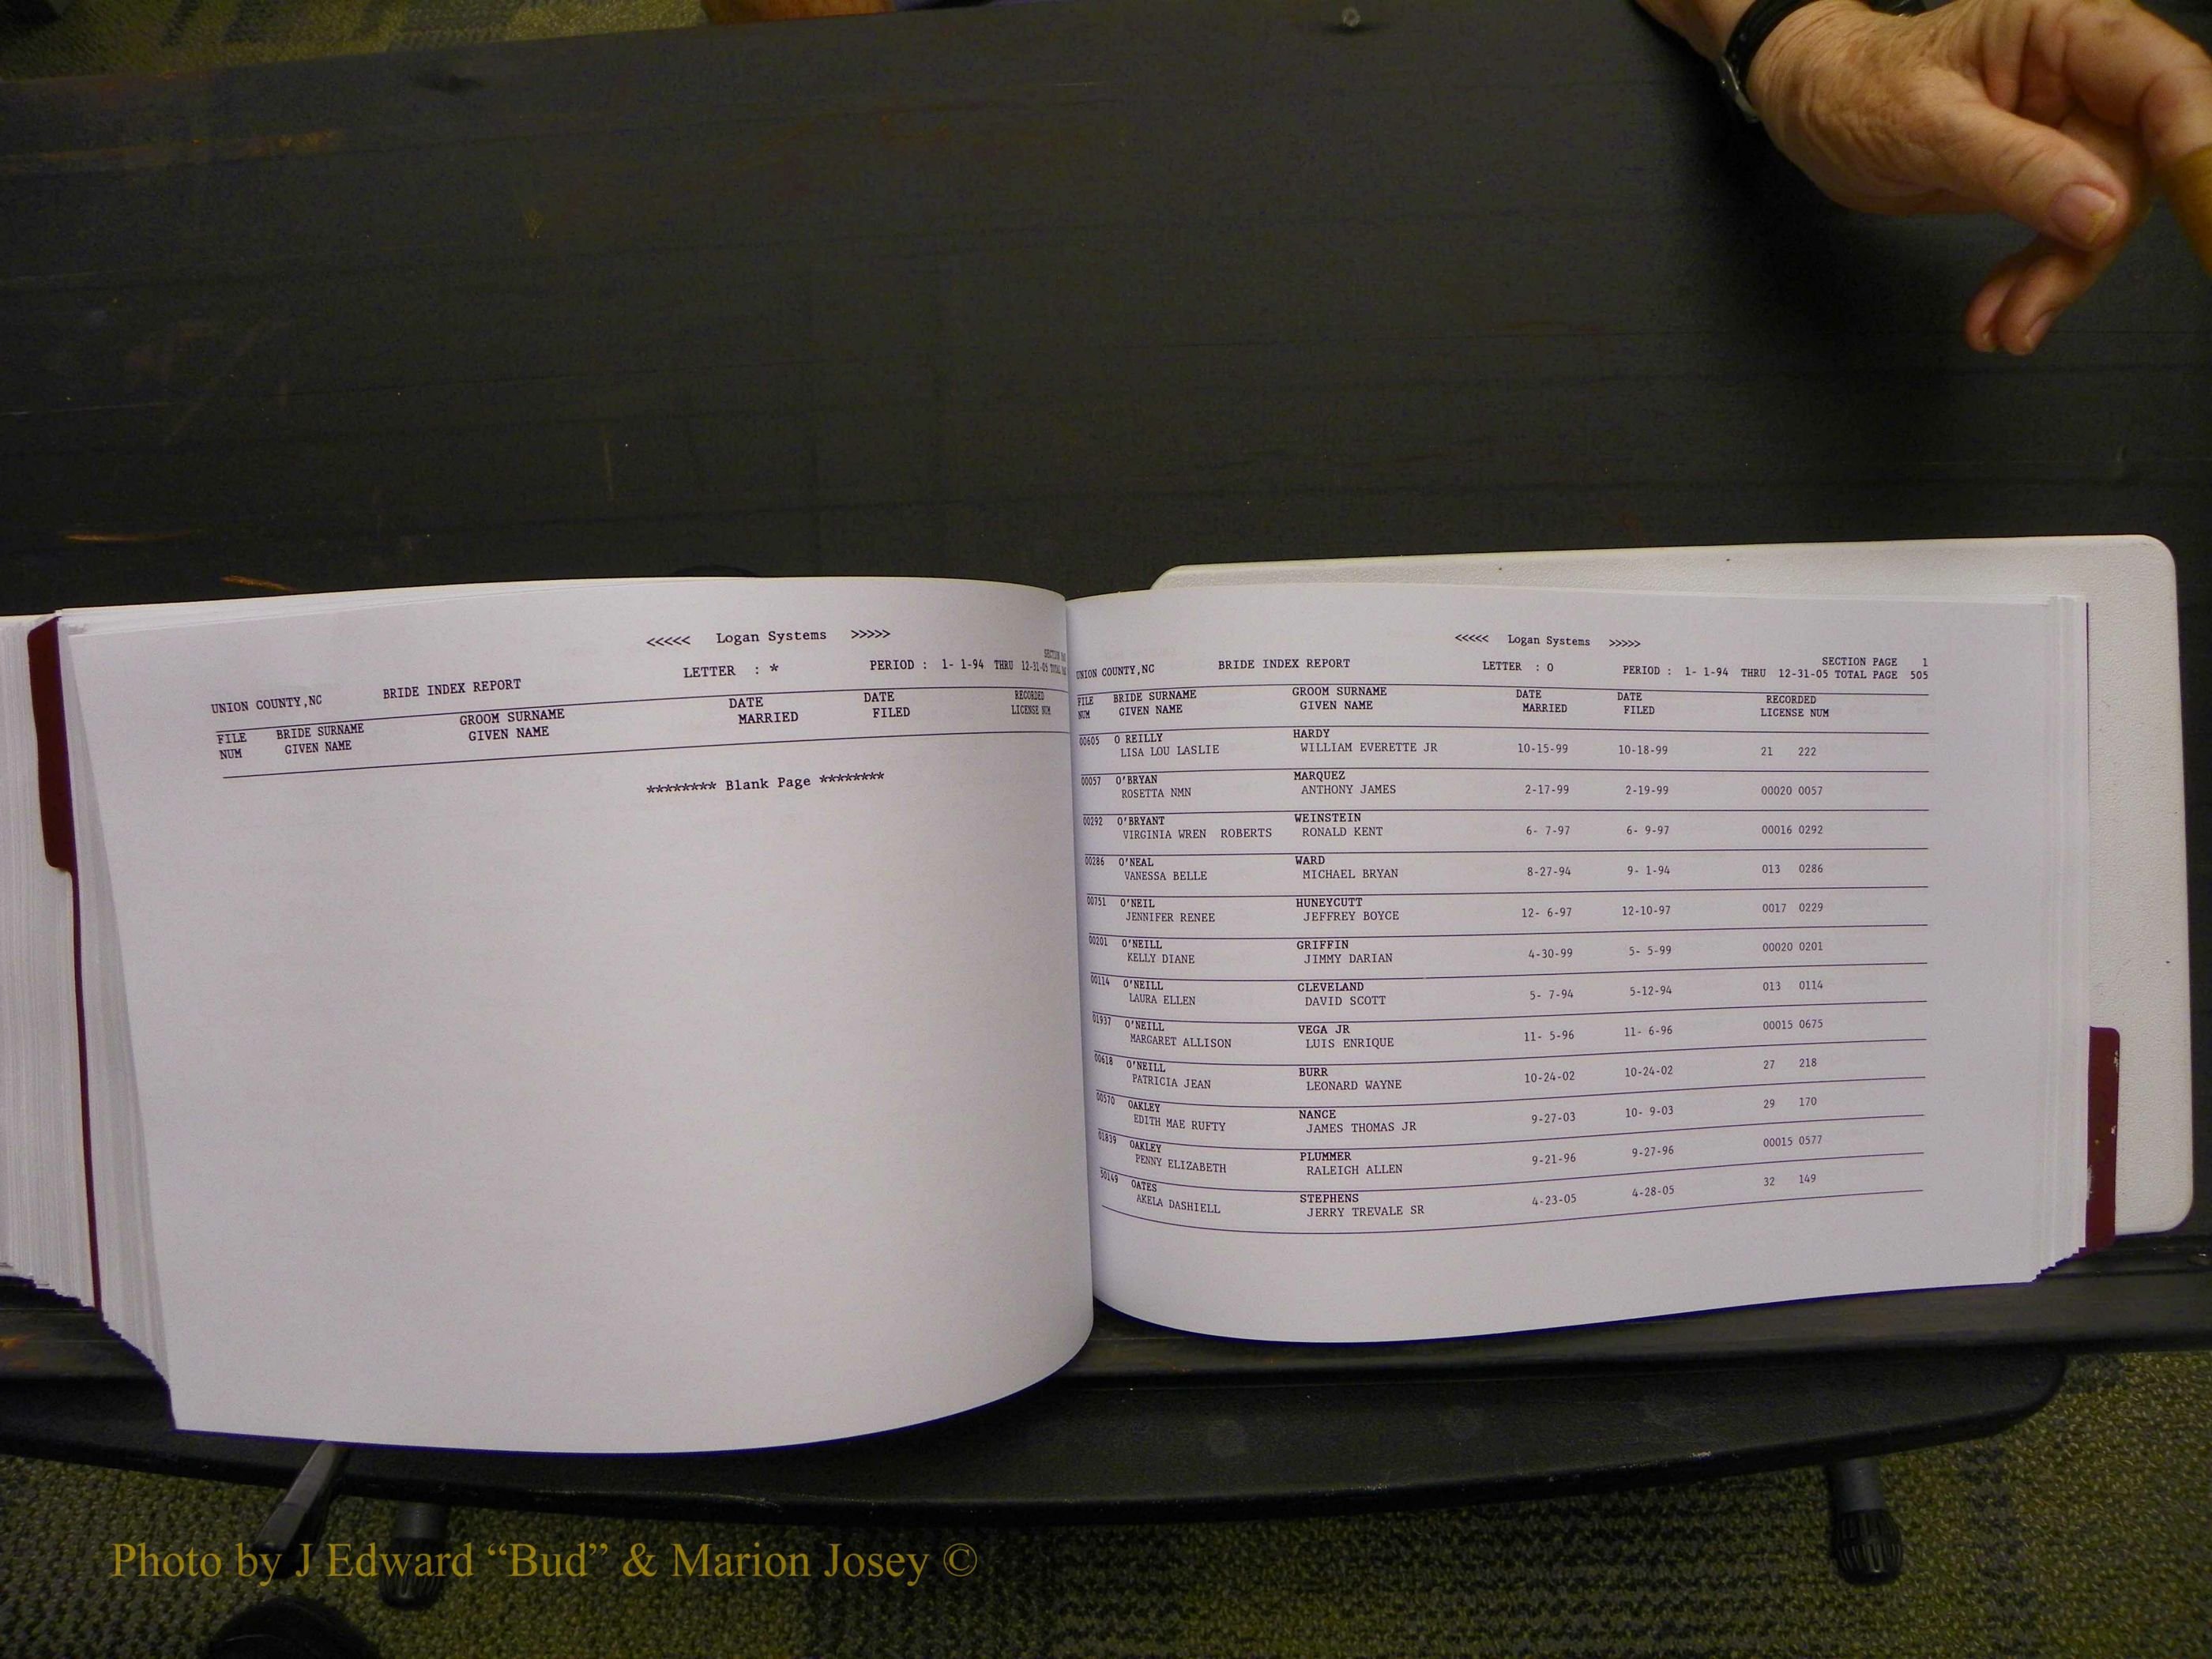 <<<<< Logan Systems >>>>>
UNION COUNTY,NC BRIDE INDEX REPORT LETTER : * PERIOD : 1- 1-94 THRU 12-31-05 TOTAL
FILE BRIDE SURNAME GROOM SURNAME DATE DATE RECORDED
NUM GIVEN NAME GIVEN NAME MARRIED FILED LICENSE NUM
******** Blank Page ********
<<<<< Logan Systems >>>>>
SECTION PAGE 1
UNION COUNTY,NC BRIDE INDEX REPORT LETTER : O PERIOD : 1- 1-94 THRU 12-31-05 TOTAL PAGE 505
FILE BRIDE SURNAME GROOM SURNAME DATE DATE RECORDED
NUM GIVEN NAME GIVEN NAME MARRIED FILED LICENSE NUM
00605 O REILLY HARDY
LISA LOU LASLIE WILLIAM EVERETTE JR 10-15-99 10-18-99 21 222
00057 O'BRYAN MARQUEZ
ROSETTA NMN ANTHONY JAMES 2-17-99 2-19-99 00020 0057
00292 O'BRYANT WEINSTEIN
VIRGINIA WREN ROBERTS RONALD KENT 6- 7-97 6- 9-97 00016 0292
00286 O'NEAL WARD
VANESSA BELLE MICHAEL BRYAN 8-27-94 9- 1-94 013 0286
00751 O'NEIL HUNEYCUTT
JENNIFER RENEE JEFFREY BOYCE 12- 6-97 12-10-97 0017 0229
00201 O'NEILL GRIFFIN
KELLY DIANE JIMMY DARIAN 4-30-99 5- 5-99 00020 0201
00114 O'NEILL CLEVELAND
LAURA ELLEN DAVID SCOTT 5- 7-94 5-12-94 013 0114
01937 O'NEILL VEGA JR
MARGARET ALLISON LUIS ENRIQUE 11- 5-96 11- 6-96 00015 0675
00618 O'NEILL BURR
PATRICIA JEAN LEONARD WAYNE 10-24-02 10-24-02 27 218
00570 OAKLEY NANCE
EDITH MAE RUFTY JAMES THOMAS JR 9-27-03 10- 9-03 29 170
01839 OAKLEY PLUMMER
PENNY ELIZABETH RALEIGH ALLEN 9-21-96 9-27-96 00015 0577
50149 OATES STEPHENS
AKELA DASHIELL JERRY TREVALE SR 4-23-05 4-28-05 32 149
Photo by J Edward “Bud” & Marion Josey ©